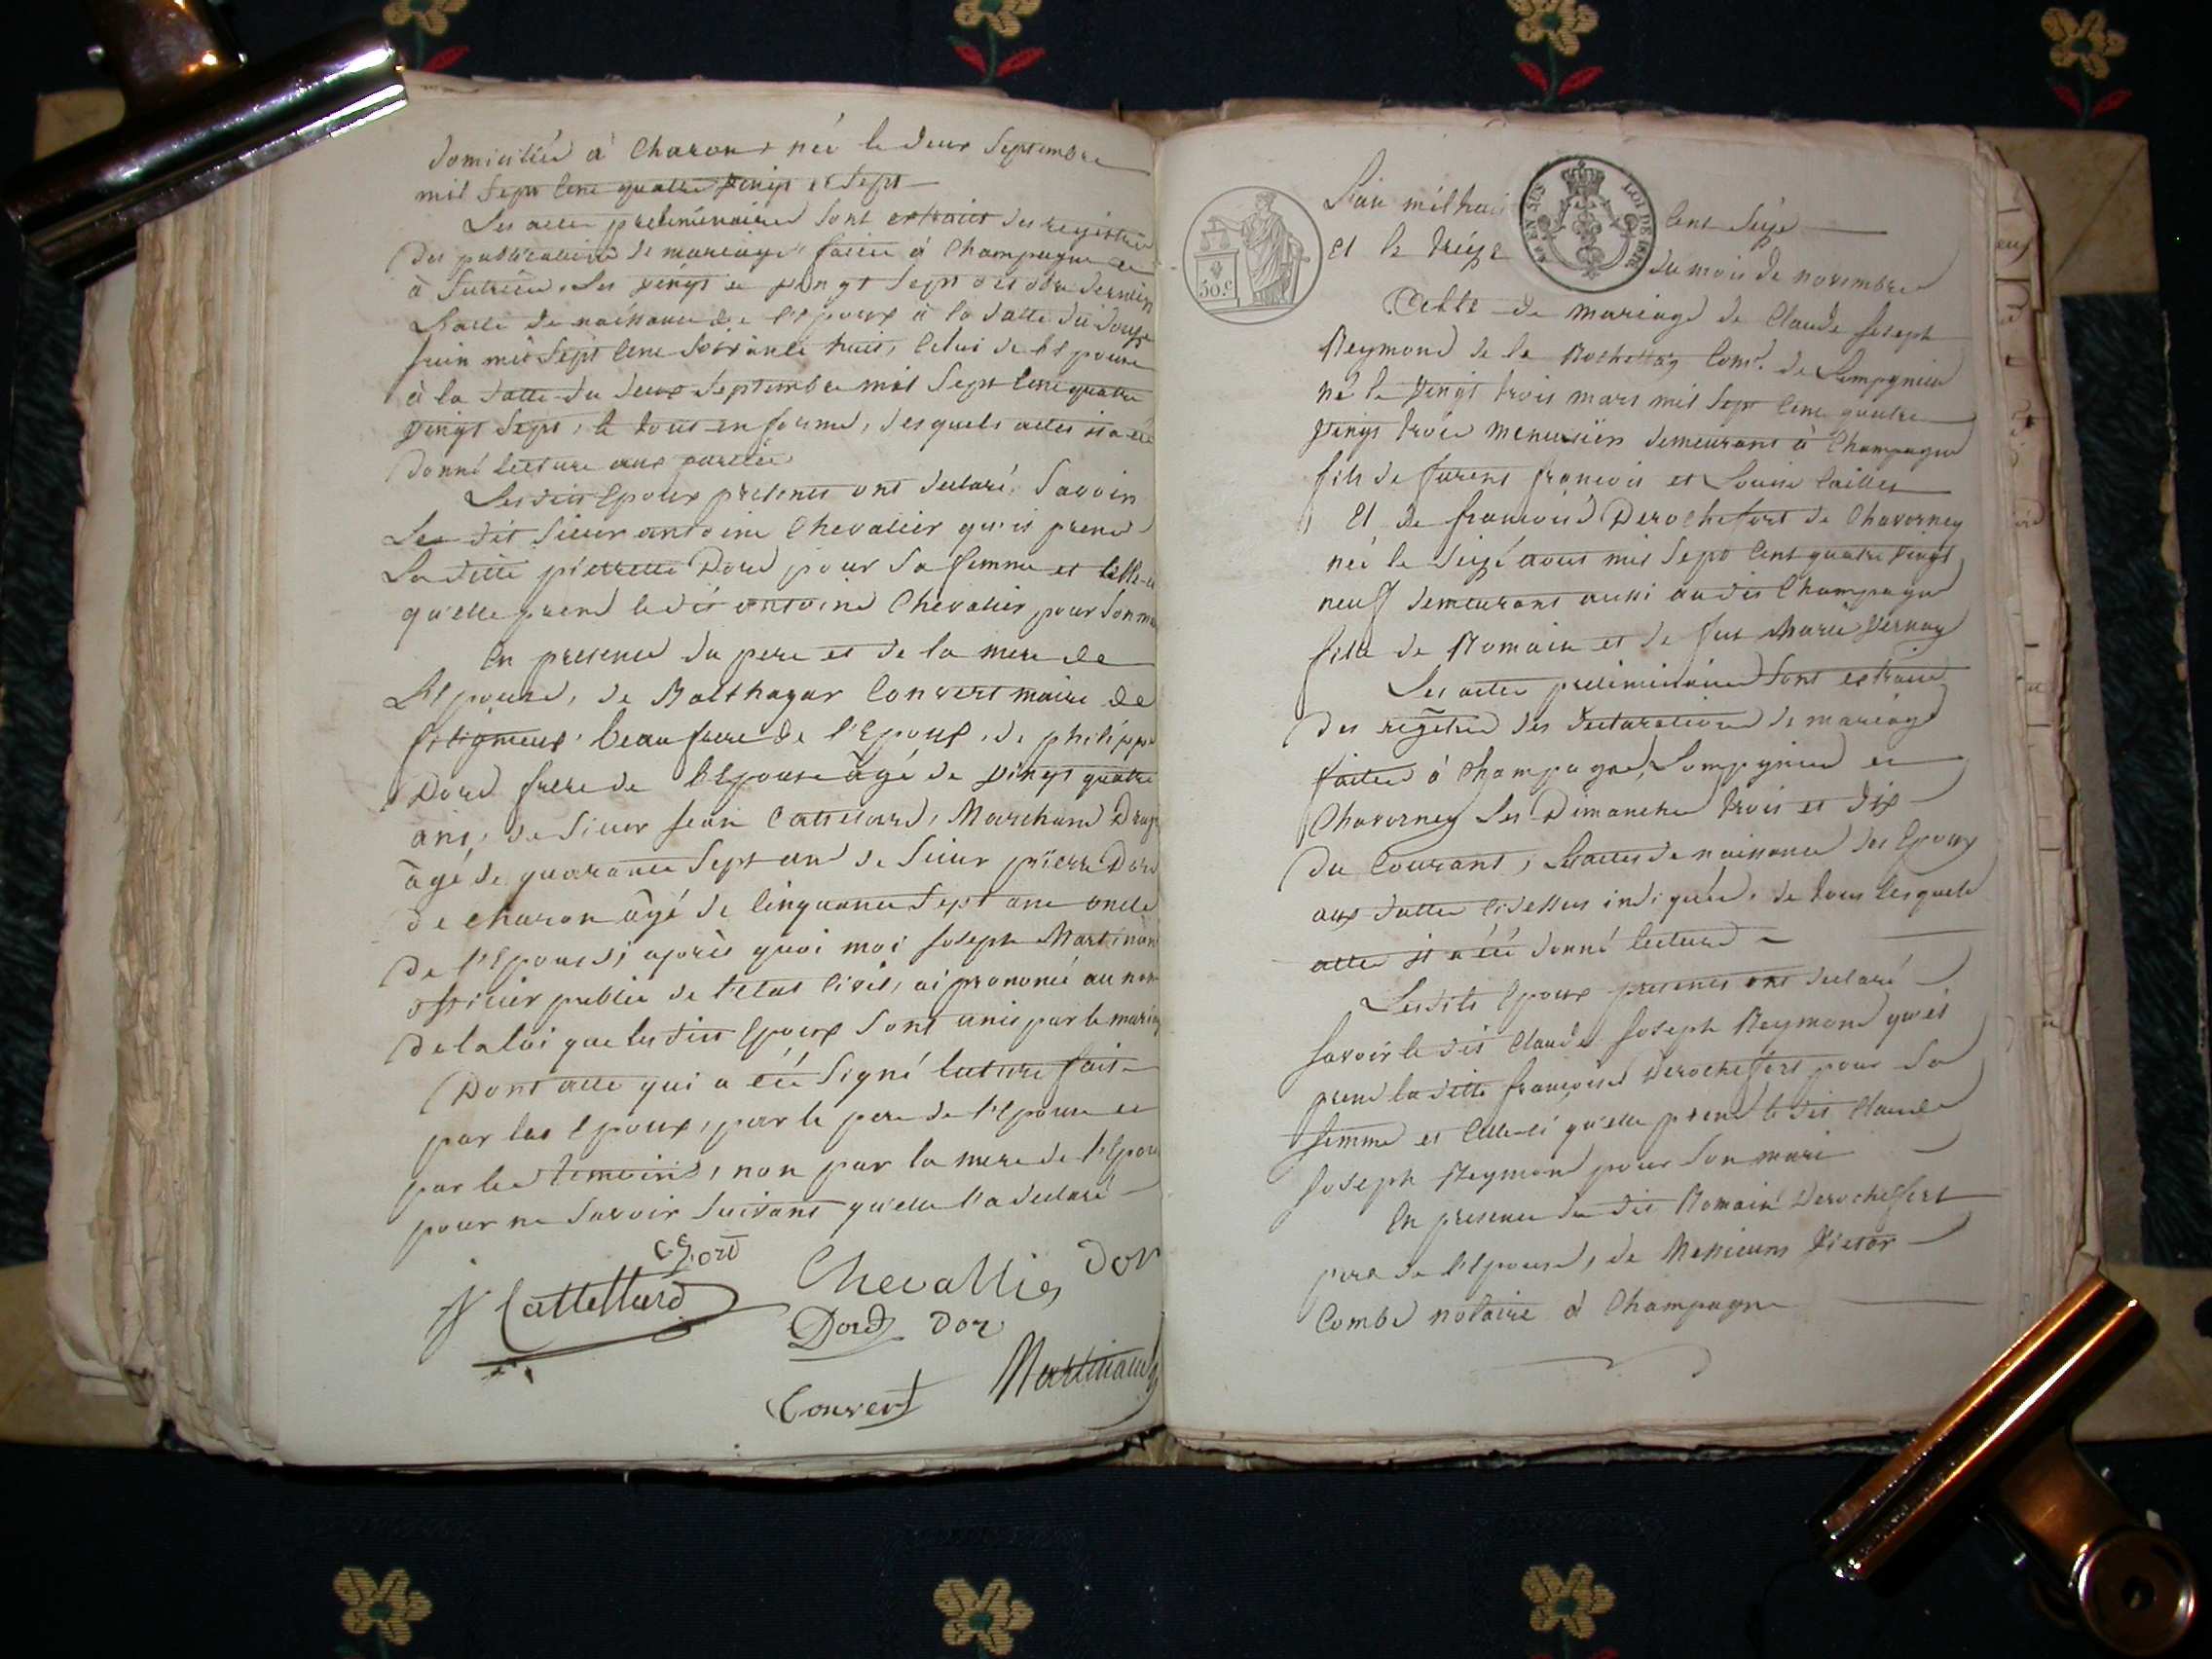 domiciliée à Charon, née le deux Septembre
mil Sept Cent quatre vingt et Sept
Les actes préliminaires Sont extraits des registres
des publications de mariage faittes à Champagne et
à Sutrieu, Les vingt et vingt Sept octobre dernier
L'acte de naissance de l'Epoux à la datte du douze
Juin mil Sept Cent Soixante huit, Celui de l'Epouse
à la datte du deux Septembre mil Sept Cent quatre
vingt Sept, le tout en forme, desquels actes il a été
donné lecture aux parties
Lesdits Epoux présents ont déclaré, Savoir
Le dit Sieur antoine Chevalier qu'il prend
La ditte pierrette Dord pour Sa femme et Celle-ci
qu'elle prend le dit antoine Chevalier pour Son mari
En presence du pere et de la mere de
L'Epouse, de Balthazar Convert maire de
beaufrere de l'Epoux, de philippe
Dord frere de l'Epouse âgé de vingt quatre
ans, de Sieur Jean Cattelard, Marchand
âgé de quarante Sept ans de Sieur pierre Dord
de charon âgé de Cinquante Sept ans oncle
de l'Epouse, après quoi moi Joseph Martinand
officier public de l'etat Civil, ai prononcé au nom
de la loi que lesdits Epoux Sont unis par le mariage
Dont acte qui a été Signé lecture faite
par les Epoux, par le pere de l'Epouse et
par les temoins, non par la mere de l'Epouse
pour ne Savoir Suivant qu'elle l'a déclaré
Dord
Chevallier dor
J Cattellard
Dord dor
Martinand
Convert
L'an mil huit Cent Seize
EN SUS LOI DE 1816
et le treize du mois de novembre
50.c
Acte de mariage de Claude Joseph
Reymond de la Comne. de Lompnieu
né le vingt trois mars mil Sept Cent quatre
vingt trois menuisier demeurant à Champagne
fils de furent francois et Louise Caillet
Et de francoise Derochefort de Chavorney
née le Seize aout mil Sept Cent quatre vingt
neuf demeurant aussi au dit Champagne
fille de Romain et de fut Marie Vernay
Les actes preliminaires Sont extraits
des registres des declarations de mariage
faittes à Champagne, Lompgnieu et
Chavorney Les Dimanches trois et dix
du Courant, Les actes de naissance des Epoux
aux dattes Cidessus indiquées, de tous lesquels
actes il a été donné lecture
Lesdits Epoux presents ont declaré
Savoir le dit Claude Joseph Reymond qu'il
prend la ditte francoise Derochefort pour Sa
femme et Celle-ci qu'elle prend le dit Claude
Joseph Reymond pour Son mari
En presence du dit Romain Derochefort
pere de l'Epouse, de Messieurs Victor
Combe notaire à Champagne